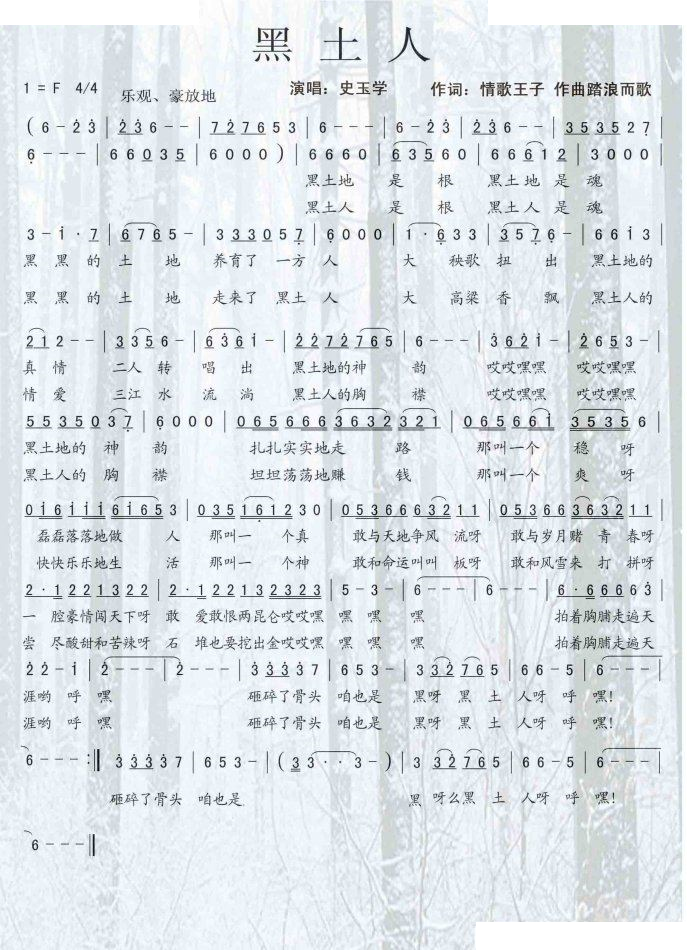 黑土人
1 = F 4/4 乐观、豪放地 演唱：史玉学 作词：情歌王子 作曲踏浪而歌
( 6 - 2 3 | 2 3 6 - - | 7 2 7 6 5 3 | 6 - - - | 6 - 2 3 | 2 3 6 - - | 3 5 3 5 2 7 |
6 - - - | 6 6 0 3 5 | 6 0 0 0 ) | 6 6 6 0 | 6 3 5 6 0 | 6 6 6 1 2 | 3 0 0 0 |
黑土地 是 根 黑土地 是 魂
黑土人 是 根 黑土人 是 魂
3 - i · 7 | 6 7 6 5 - | 3 3 3 0 5 7 | 6 0 0 0 | 1 · 6 3 3 | 3 5 7 6 - | 6 6 i 3 |
黑 黑 的 土 地 养育了 一方 人 大 秧歌 扭 出 黑土地的
黑 黑 的 土 地 走来了 黑土 人 大 高粱 香 飘 黑土人的
2 1 2 - - | 3 3 5 6 - | 6 3 6 i - | 2 2 7 2 7 6 5 | 6 - - - | 3 6 2 i - | 2 6 5 3 - |
真 情 二人 转 唱 出 黑土地的神 韵 哎哎嘿嘿 哎哎嘿嘿
情 爱 三江 水 流 淌 黑土人的胸 襟 哎哎嘿嘿 哎哎嘿嘿
5 5 3 5 0 3 7 | 6 0 0 0 | 0 6 5 6 6 6 3 6 3 2 3 2 1 | 0 6 5 6 6 i 3 5 3 5 6 |
黑土地的 神 韵 扎扎实实地走 路 那叫一个 稳 呀
黑土人的 胸 襟 坦坦荡荡地赚 钱 那叫一个 爽 呀
0 i 6 i i i 6 i 6 5 3 | 0 3 5 1 6 1 2 3 0 | 0 5 3 6 6 6 6 3 2 1 1 | 0 5 3 6 6 3 6 3 2 1 1 |
磊磊落落地做 人 那叫一 个真 敢与天地争风 流呀 敢与岁月赌 青 春呀
快快乐乐地生 活 那叫一 个神 敢和命运叫叫 板呀 敢和风雪来 打 拼呀
2 · 1 2 2 1 3 2 2 | 2 · 1 2 2 1 3 2 3 2 3 | 5 - 3 - | 6 - - - | 6 - - - | 6 · 6 6 6 6 3 |
一 腔豪情闯天下呀 敢 爱敢恨两昆仑哎哎嘿 嘿 嘿 嘿 拍着胸脯走遍天
尝 尽酸甜和苦辣呀 石 堆也要挖出金哎哎嘿 嘿 嘿 嘿 拍着胸脯走遍天
2 2 - i | 2 - - - | 2 - - - | 3 3 3 3 7 | 6 5 3 - | 3 3 2 7 6 5 | 6 6 - 5 | 6 - - - |
涯哟 呼 嘿 砸碎了骨头 咱也是 黑呀 黑 土 人呀 呼 嘿！
涯哟 呼 嘿 砸碎了骨头 咱也是 黑呀 黑 土 人呀 呼 嘿！
6 - - - :‖ 3 3 3 3 7 | 6 5 3 - | ( 3 3 · · 3 - ) | 3 3 2 7 6 5 | 6 6 - 5 | 6 - - - |
砸碎了骨头 咱也是 黑 呀么黑 土 人呀 呼 嘿！
6 - - - ‖